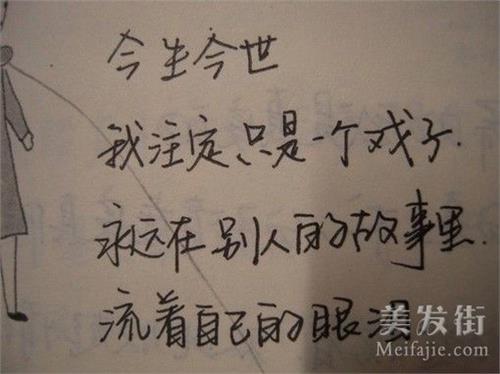 今生今世
我注定只是一个戏子.
永远在别人的故事里.
流着自己的眼泪
美发街
Meifajie.com